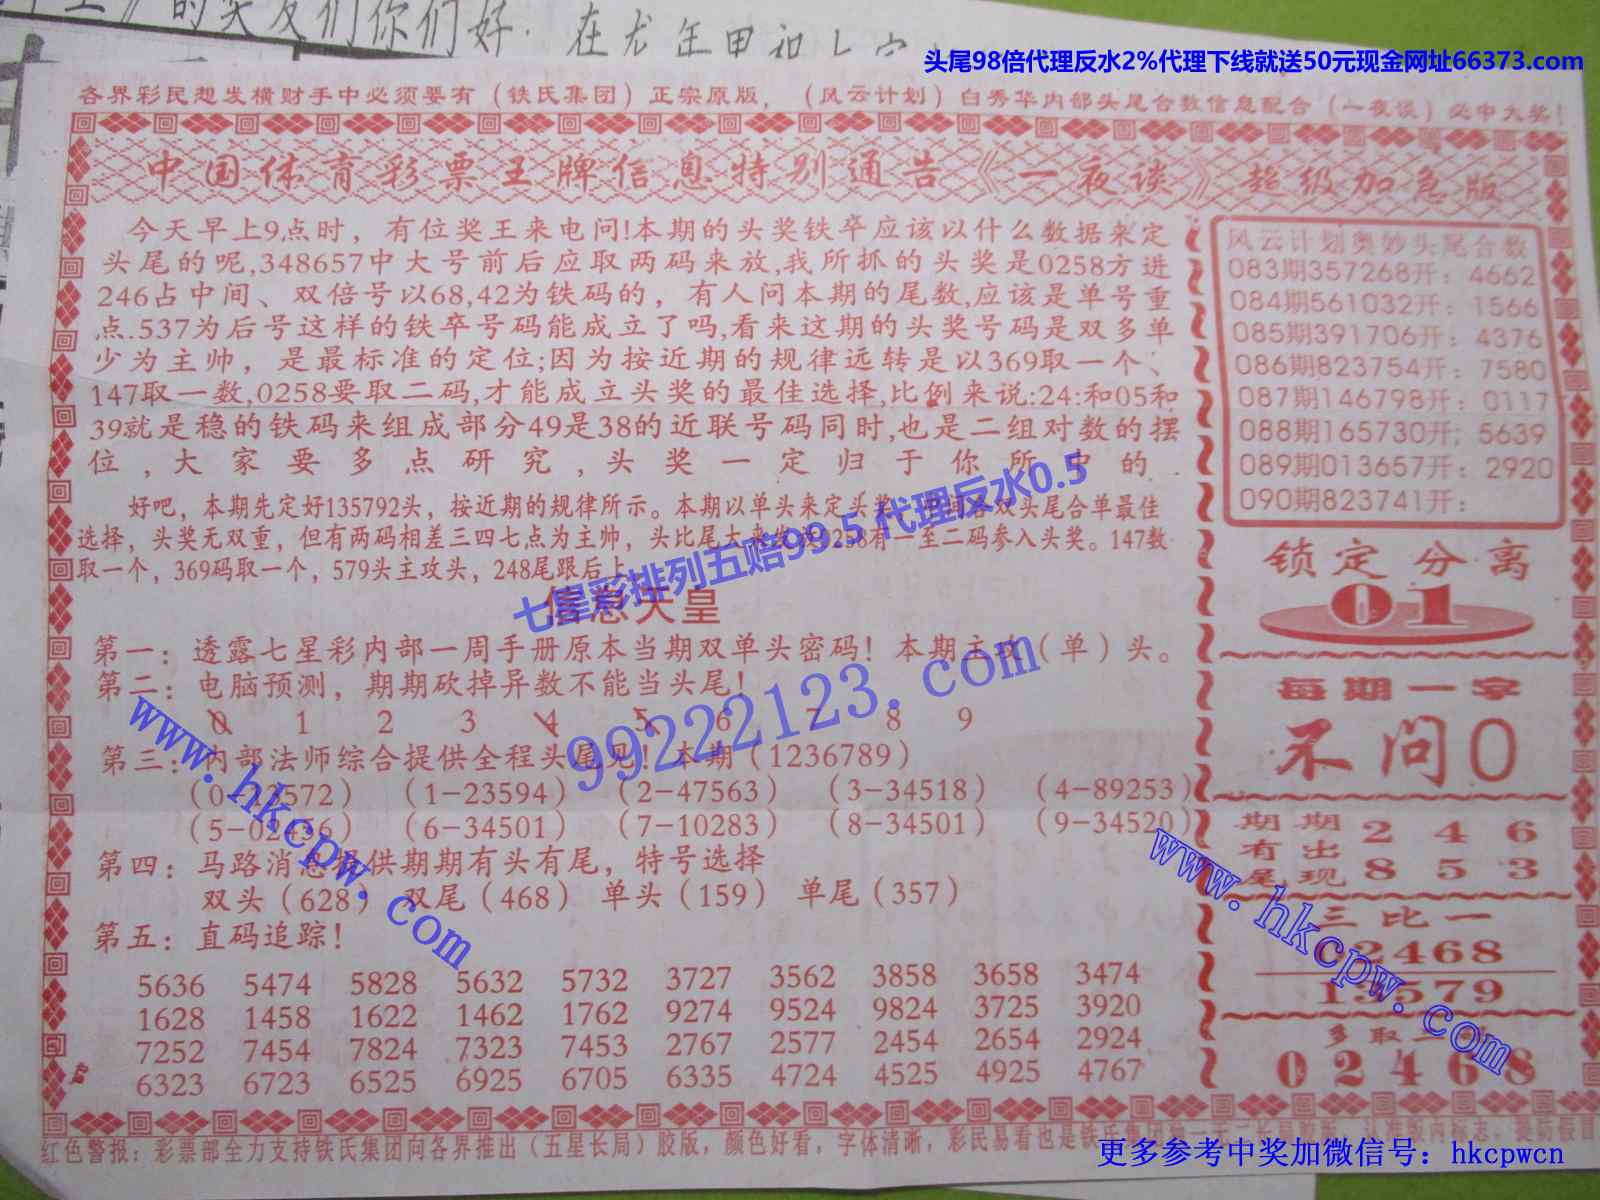 的奖友们你们好.在龙年里和七
头尾98倍代理反水2%代理下线就送50元现金网址66373.com
各界彩民想发横财手中必须要有（铁氏集团）正宗原版，（风云计划）白秀华内部头尾合数信息配合（一夜谈）必中大奖！
中国体育彩票王牌信息特别通告《一夜谈》超级加急版
今天早上9点时，有位奖王来电问!本期的头奖铁卒应该以什么数据来定
头尾的呢,348657中大号前后应取两码来放,我所抓的头奖是0258方进
246占中间、双倍号以68,42为铁码的，有人问本期的尾数,应该是单号重
点.537为后号这样的铁卒号码能成立了吗,看来这期的头奖号码是双多单
少为主帅，是最标准的定位;因为按近期的规律远转是以369取一个、
147取一数,0258要取二码,才能成立头奖的最佳选择,比例来说:24:和05和
39就是稳的铁码来组成部分49是38的近联号码同时,也是二组对数的摆
位,大家要多点研究,头奖一定归于你所中的
好吧，本期先定好135792头，按近期的规律所示。本期以单头来定头奖 双头尾合单最佳
选择，头奖无双重，但有两码相差三四七点为主帅，头比尾大来 0258有一至二码参入头奖。147数
取一个，369码取一个，579头主攻头，248尾跟后上
七星彩排列五赔99.5 代理反水0.5
信息天皇
第一：透露七星彩内部一周手册原本当期双单头密码！本期主攻（单）头。
第二：电脑预测，期期砍掉异数不能当头尾！
0 1 2 3 4 5 6 7 8 9
99222123.com
第三：内部法师综合提供全程头尾见！本期（1236789）
（0-13572）（1-23594）（2-47563）（3-34518）（4-89253）
（5-02456）（6-34501）（7-10283）（8-34501）（9-34520）
www.hkcpw.com
第四：马路消息提供期期有头有尾，特号选择
双头（628） 双尾（468） 单头（159） 单尾（357）
第五：直码追踪！
5636 5474 5828 5632 5732 3727 3562 3858 3658 3474
1628 1458 1622 1462 1762 9274 9524 9824 3725 3920
7252 7454 7824 7323 7453 2767 2577 2454 2654 2924
6323 6723 6525 6925 6705 6335 4724 4525 4925 4767
风云计划奥妙头尾合数
083期357268开：4662
084期561032开：1566
085期391706开：4376
086期823754开：7580
087期146798开：0117
088期165730开；5639
089期013657开：2920
090期823741开：
锁定分离
01
每期一字
不问0
期期 2 4 6
有出
尾现 8 5 3
三比一
02468
13579
www.hkcpw.com
多取二
02468
红色警报：彩票部全力支持铁氏集团向各界推出（五星长局）胶版，颜色好看，字体清晰，彩民易看也是铁氏
更多参考中奖加微信号：hkcpwcn